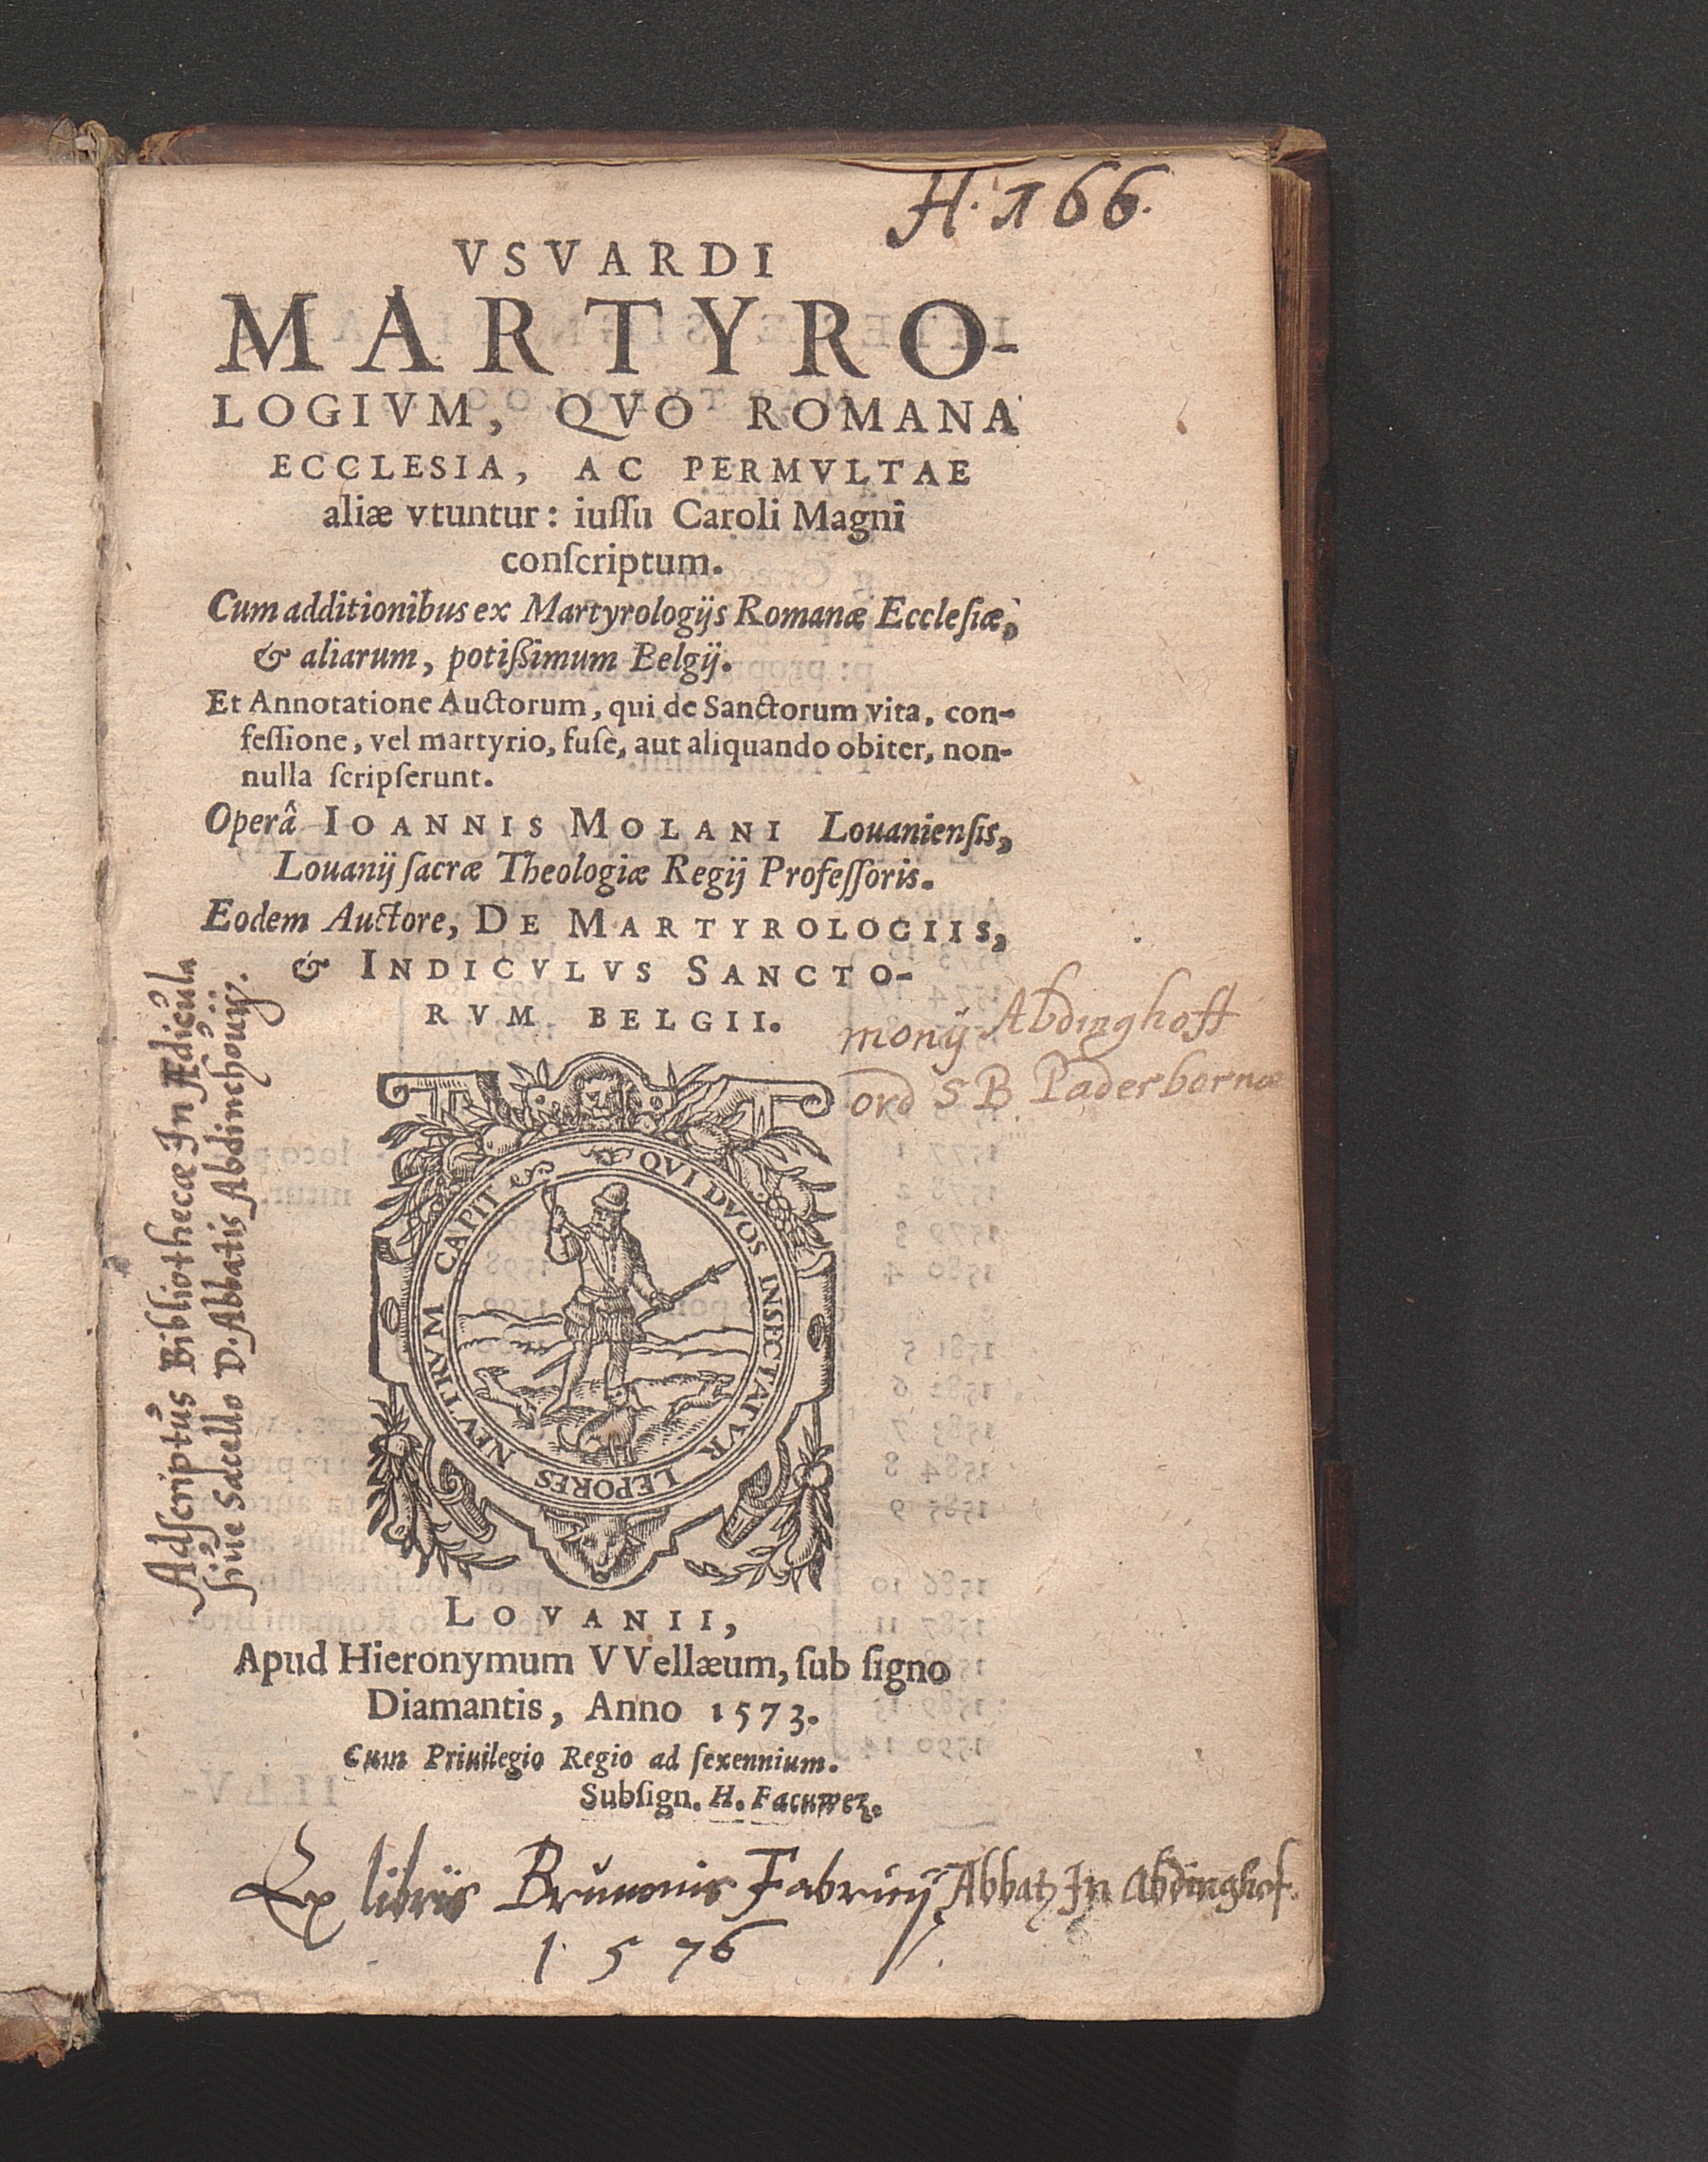 H. 166.
VSVARDI
MARTYRO-
LOGIVM, QVO ROMANA
ECCLESIA, AC PERMVLTAE
aliæ vtuntur: iuſſu Caroli Magni
conſcriptum.
Cum additionibus ex Martyrologijs Romanæ Eccleſiæ,
& aliarum, potißimum Belgij.
Et Annotatione Auctorum, qui de Sanctorum vita, con-
feſſione, vel martyrio, fuſè, aut aliquando obiter, non-
nulla ſcripſerunt.
Operâ IOANNIS MOLANI Louanienſis,
Louanij ſacræ Theologiæ Regij Profeſſoris.
Eodem Auctore, DE MARTYROLOGIIS,
& INDICVLVS SANCTO-
RVM BELGII.
monij Abdinghoff
ord S B Paderbornæ
Adſcriptus Bibliothecæ In Ædicula
ſiue Sacello D. Abbatis Abdinchouij.
QVI DVOS INSECTATVR LEPORES NEVTRVM CAPIT
LOVANII,
Apud Hieronymum VVellæum, ſub ſigno
Diamantis, Anno 1573.
Cum Priuilegio Regio ad ſexennium.
Subſign. H. Facuwez.
Ex libris Brunonis Fabricij Abbatz In Abdinghof.
1576